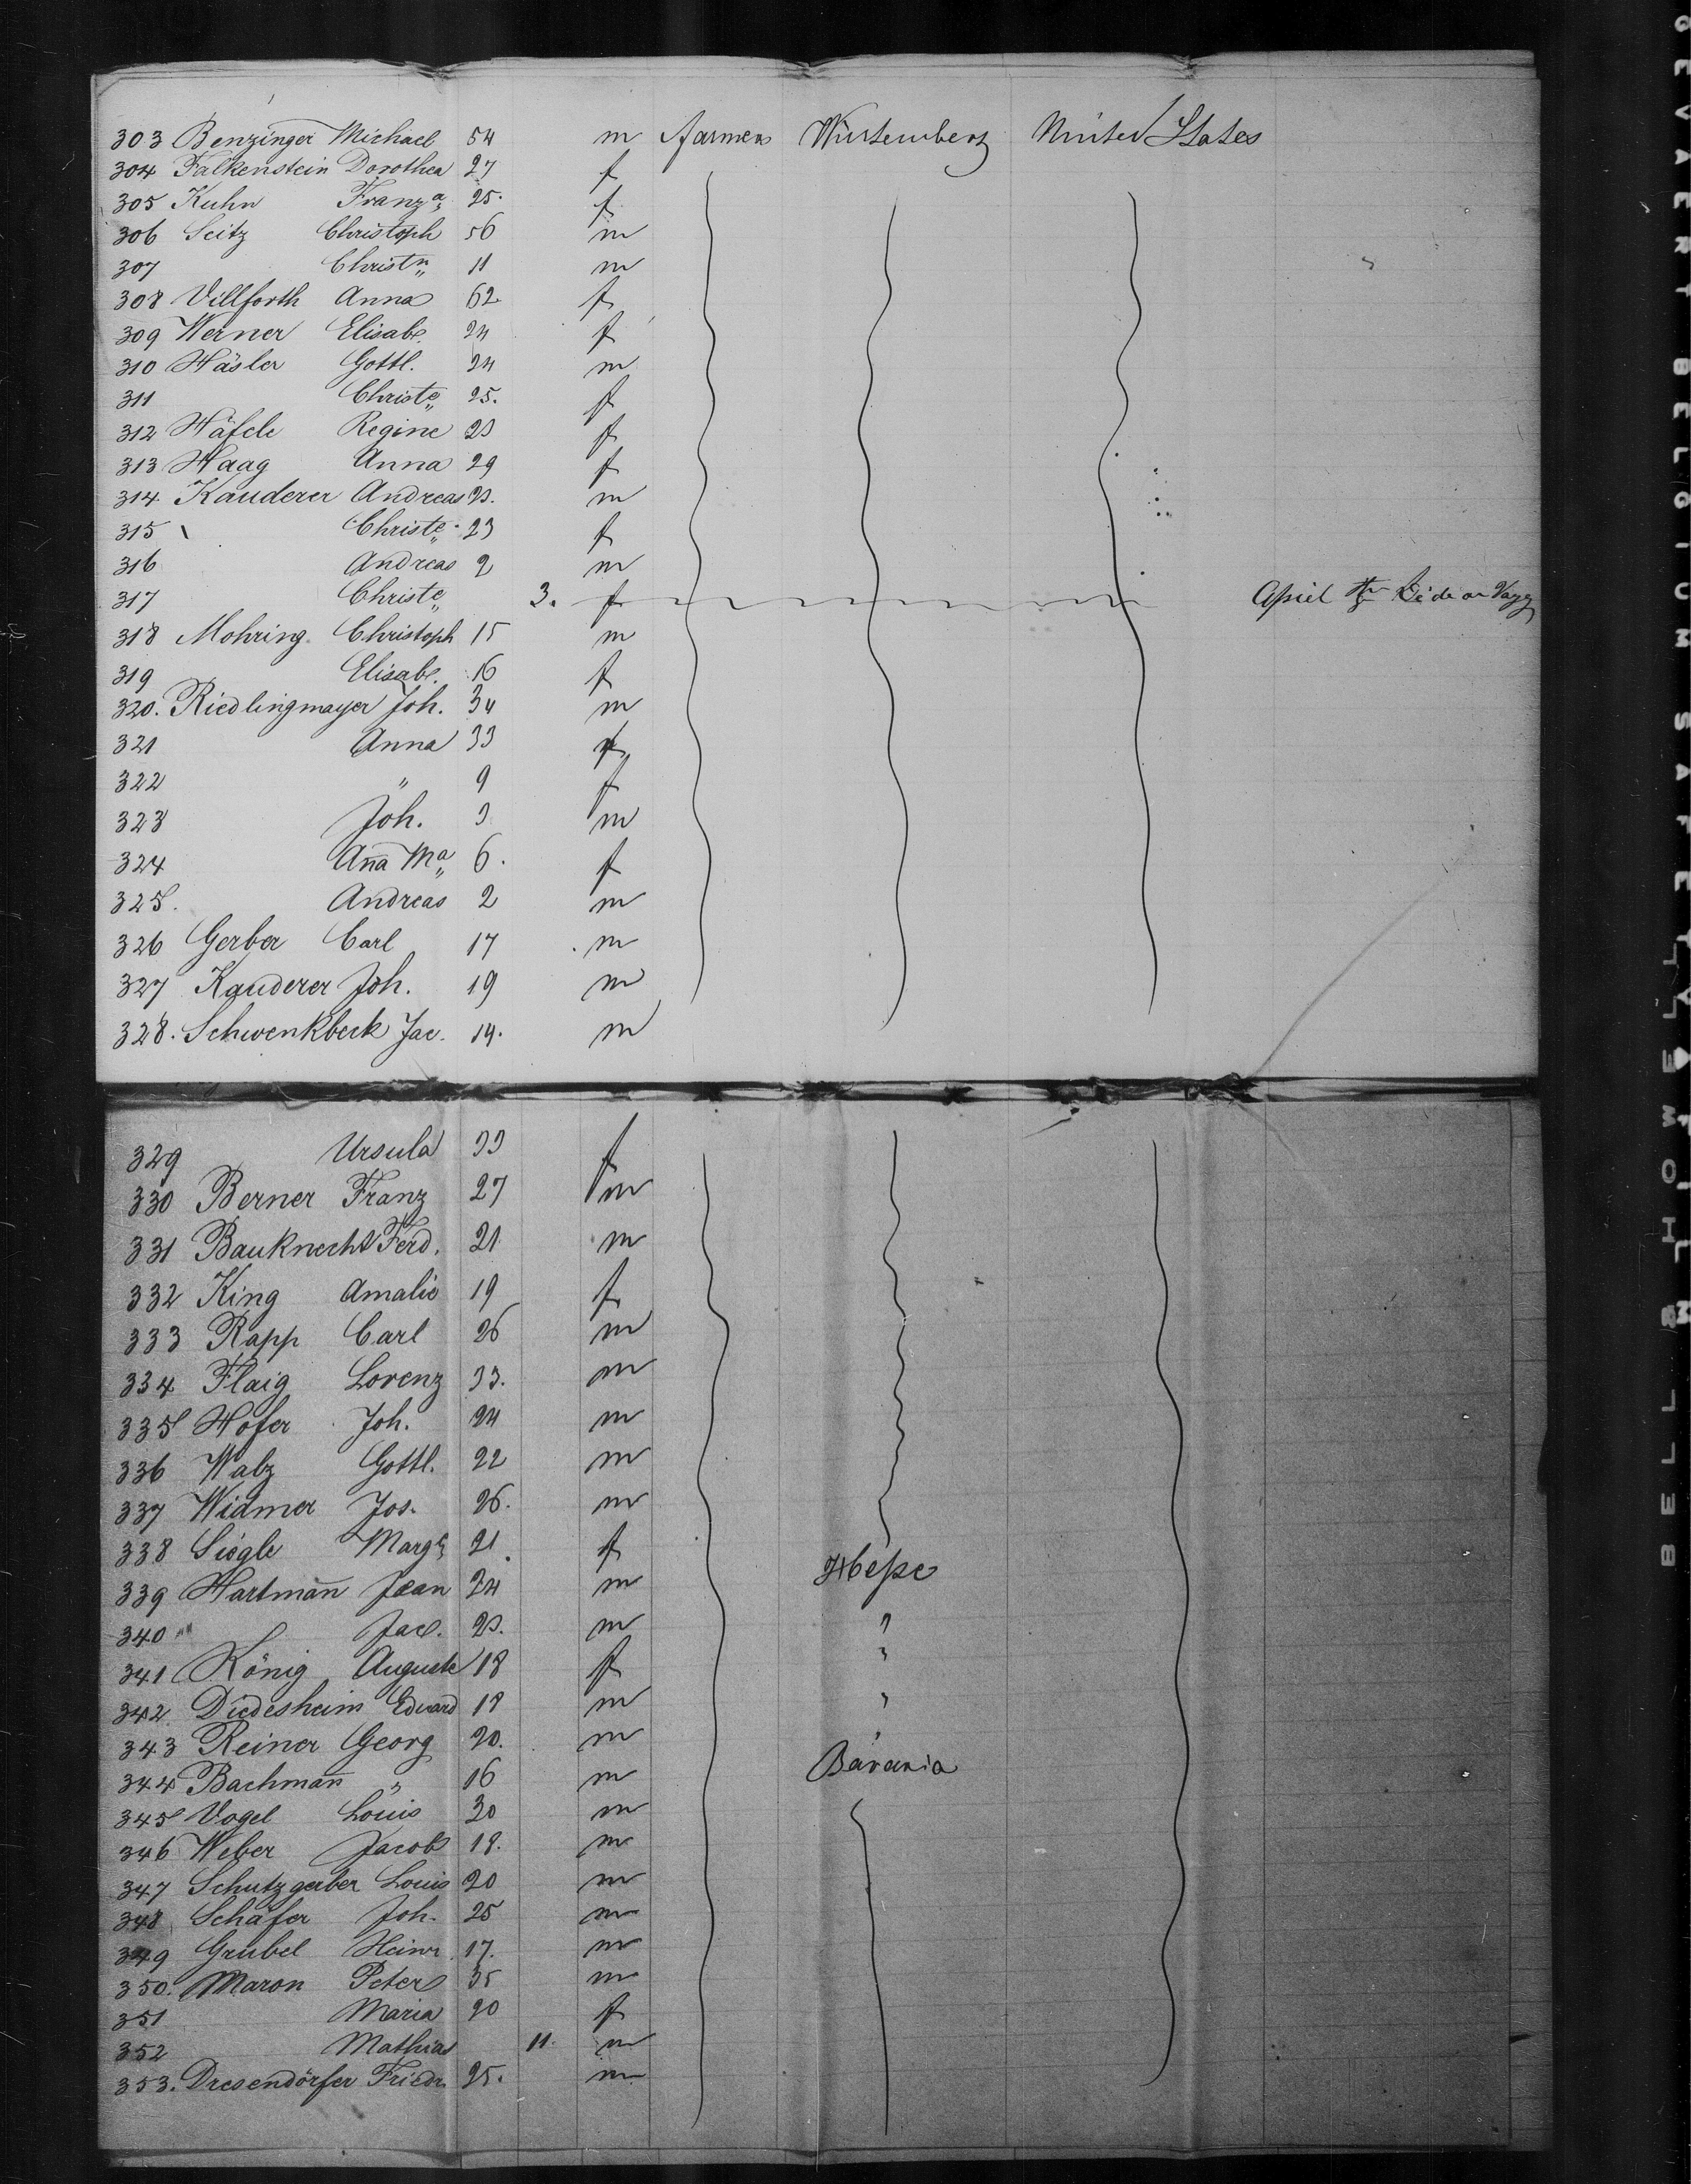 303 Benzinger Michael 54 m Farmers Würtemberg United States
304 Falkenstein Dorothea 27 f
305 Kuhn Franz a„ 25. f
306 Seitz Christoph 56 m
307 Christn„ 11 m
308 Villforth Anna 62 f
309 Werner Elisabe. 24 f
310 Häsler Gottl. 24 m
311 Christe„ 25. f
312 Häfele Regine 23 f
313 Haag Anna 29 f
314 Kauderer Andreas 23. m
315 Christe„ 23 f
316 Andreas 2 m
317 Christe„ 3. f April
318 Mohring Christoph 15 m
319 Elisabe. 16 f
320. Riedlingmayer Joh. 34 m
321 Anna 33 f
322 „ 9 f
323 Joh. 3 m
324 Ana Ma„ 6. f
325. Andreas 2 m
326 Gerber Carl 17 m
327 Kauderer Joh. 19 m
328. Schwenkbeck Jac. 19. m
329 Ursula 33 f
330 Berner Franz 27 m
331 Bauknecht Ferd. 21 m
332 King Amalie 19 f
333 Rapp Carl 26 m
334 Flaig Lorenz 33. m
335 Hofer Joh. 24 m
336 Walz Gottl. 22 m
337 Widmer Jos. 26. m
338 Siegle Marg 21 f
339 Hartman Jean 24 m Hesse
340 „ Jac. 23. m „
341 König Auguste 18 f „
342 Diedesheim Edward 18 m „
343 Reiner Georg 20. m „
344 Bachman „ 16 m Bavaria
345 Vogel Louis 30 m
346 Weber Jacob 18. m
347 Schutzgerber Louis 20 m
348 Schäfer Joh. 25 m
349 Grubel Heinr. 17. m
350. Maron Peter 35 m
351 Maria 20 f
352 Mathias 11. m
353. Dresendörfer Friedr. 25. m
GEVAERT BELGIUM SAFETY FILM